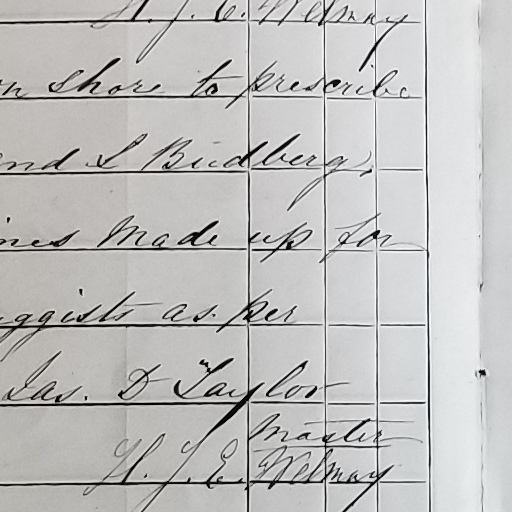 H. J. E. Welmay
on shore to prescribe
and L Budberg,
ines made up for
uggists as. per
Jas. D Taylor
Master
H. J. E. Welmay